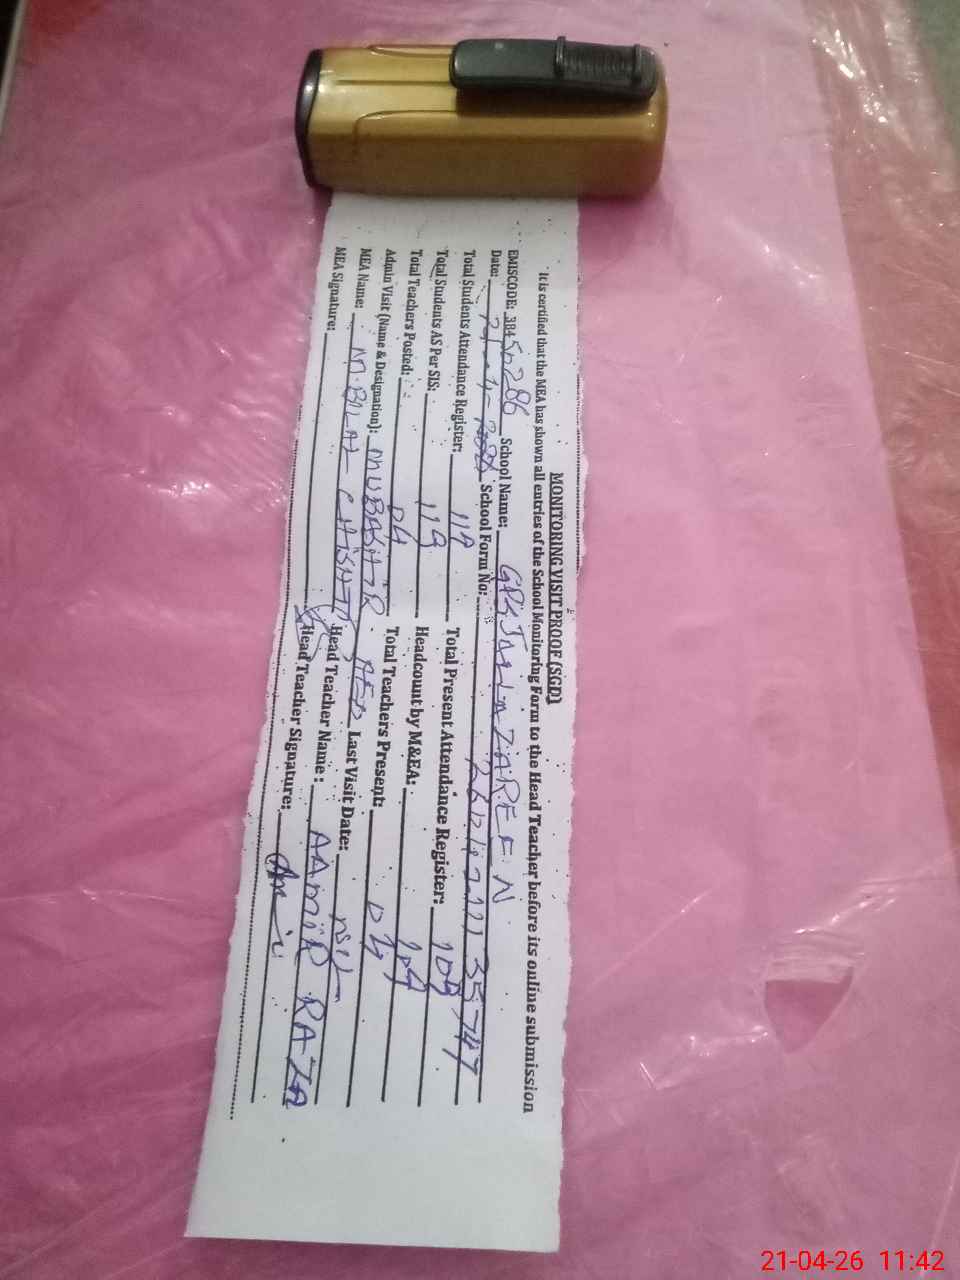 MONITORING VISIT PROOF (SGD)
It is certified that the MEA has shown all entries of the School Monitoring Form to the Head Teacher before its online submission
EMISCODE: 38450286 School Name: ZAREEN
Date: School Form No:
Total Students Attendance Register: 119 Total Present Attendance Register: 109
Total Students AS Per SIS: 119 Headcount by M&EA: 109
Total Teachers Posted: 04 Total Teachers Present: 04
Admin Visit (Name & Designation): MUBASHIR AEO Last Visit Date:
MEA Name: M.BILAL CHISHTI Head Teacher Name: AAMIR RAZA
MEA Signature: Head Teacher Signature:
21-04-26 11:42